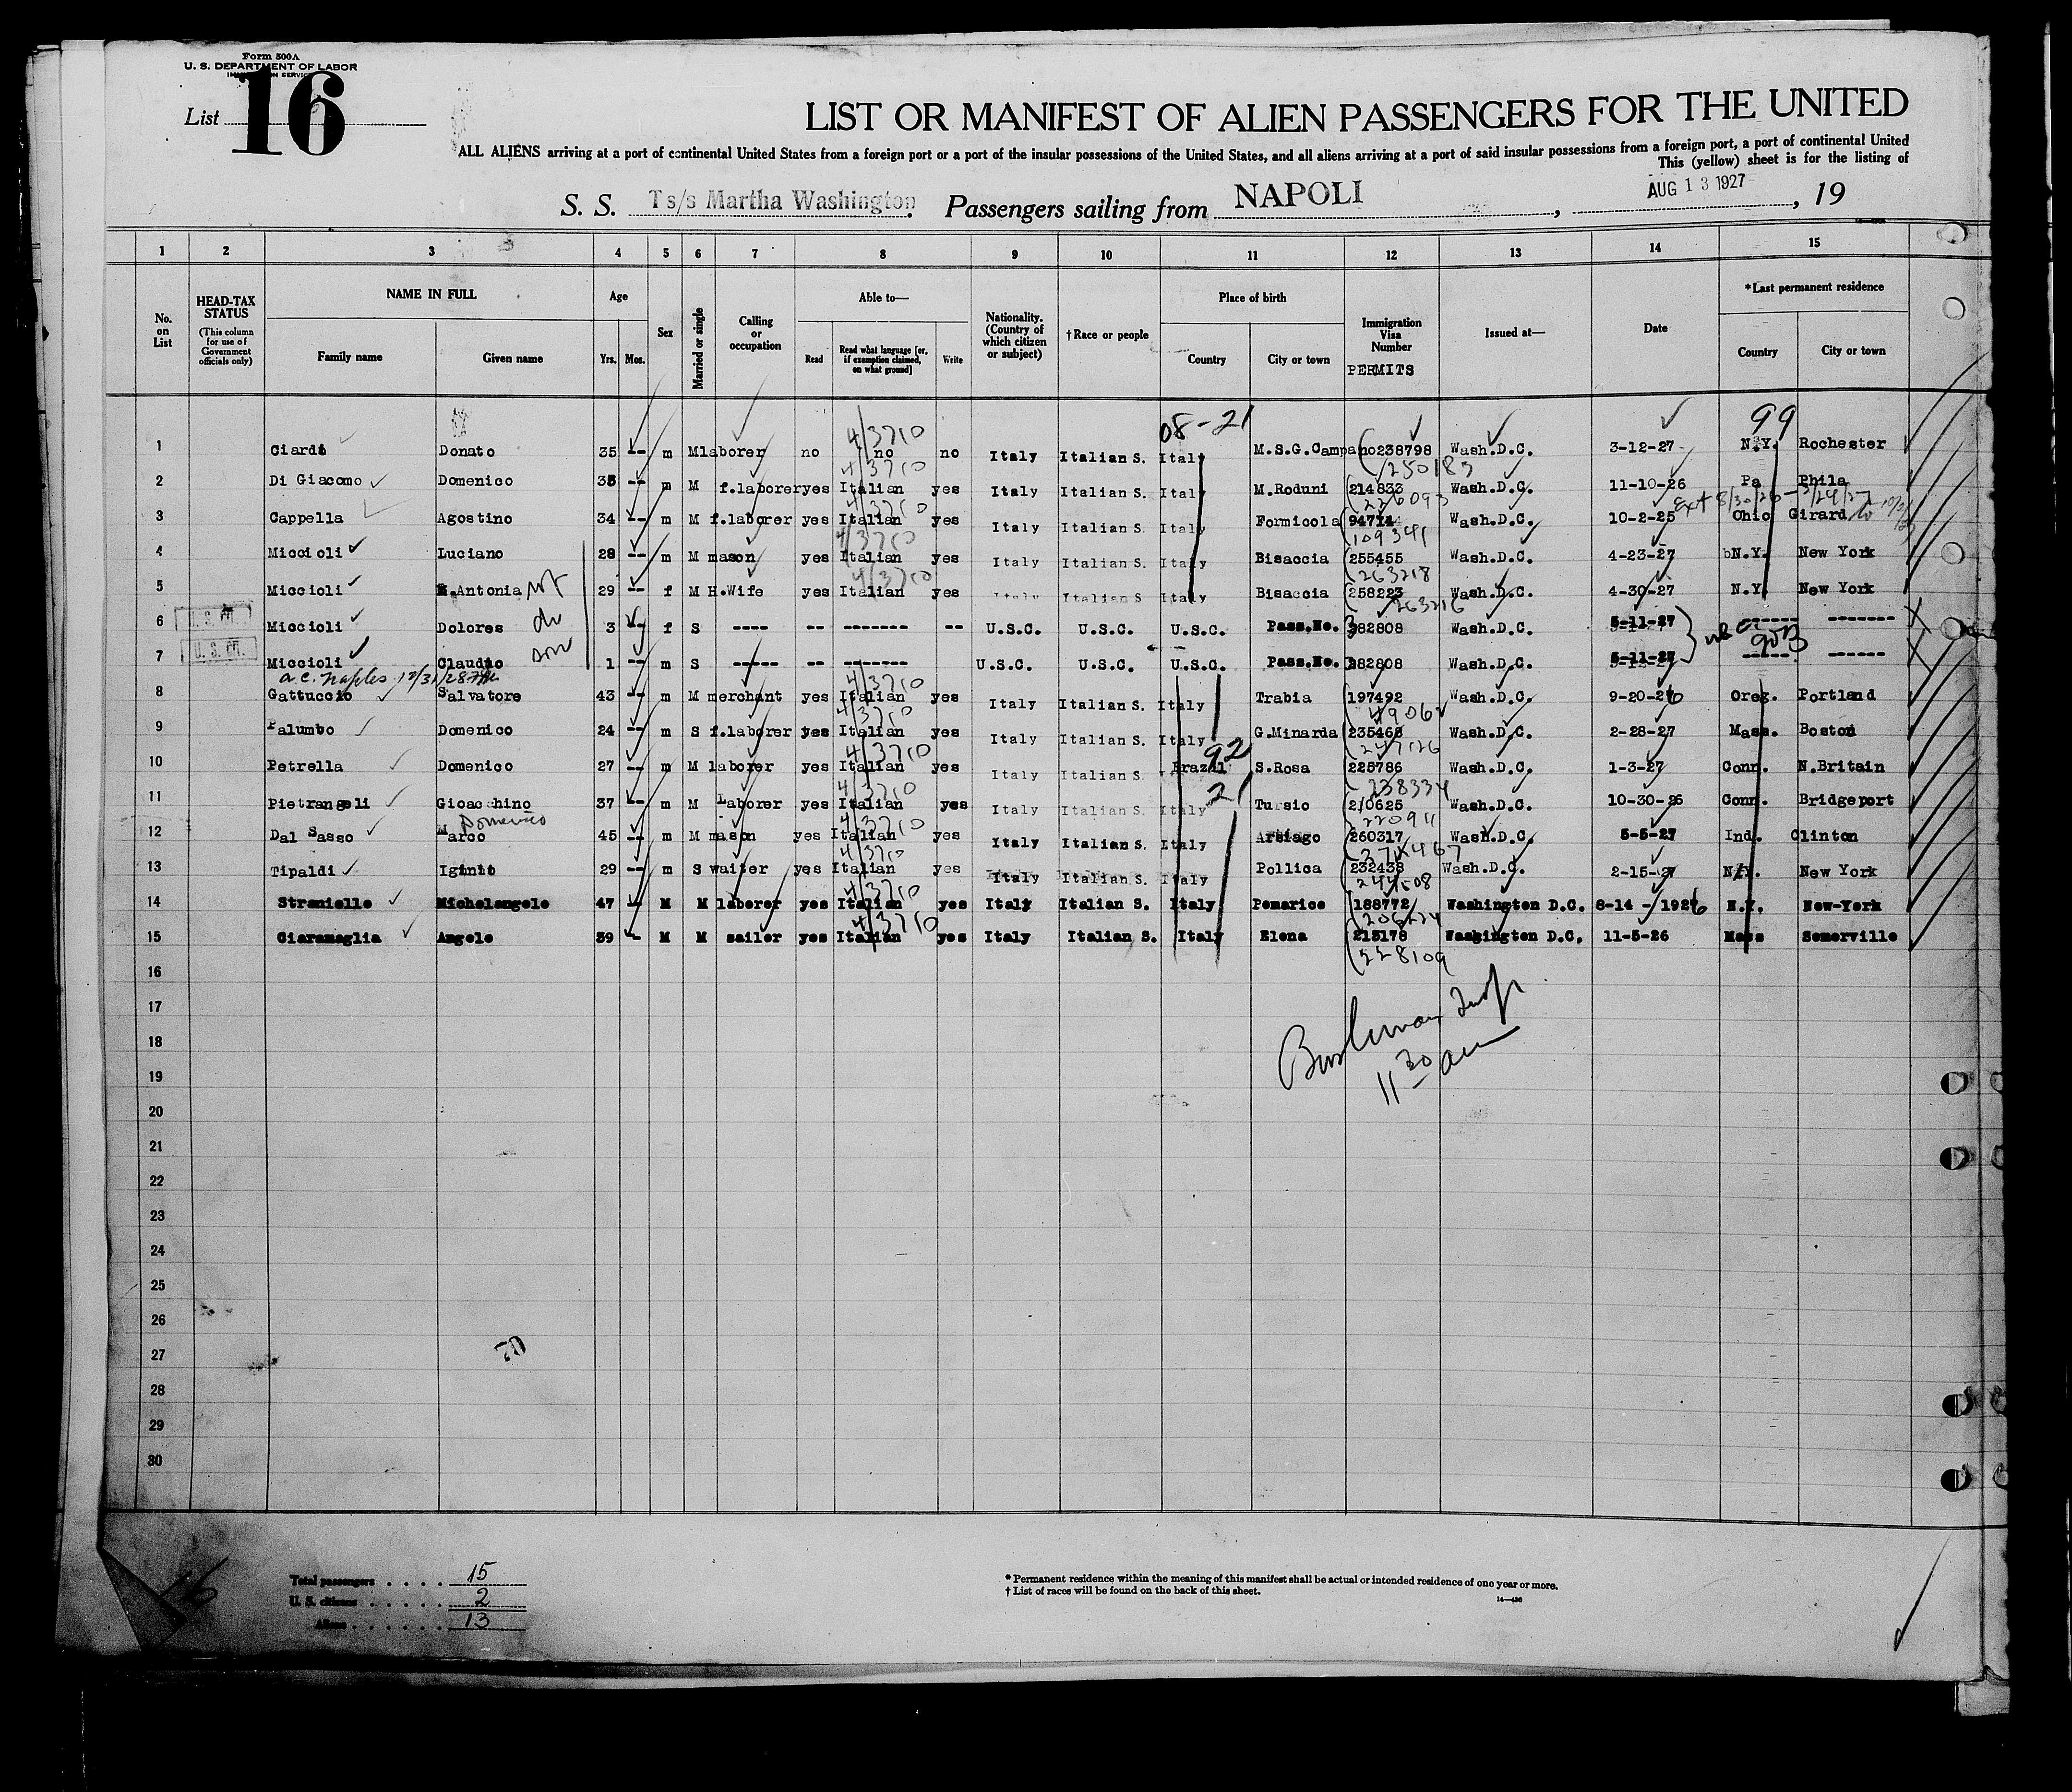 Form 500A
U. S. DEPARTMENT OF LABOR
List 16
LIST OR MANIFEST OF ALIEN PASSENGERS FOR THE UNITED
ALL ALIENS arriving at a port of continental United States from a foreign port or a port of the insular possessions of the United States, and all aliens arriving at a port of said insular possessions from a foreign port, a port of continental United
This (yellow) sheet is for the listing of
S. S. Ts/s Martha Washington. Passengers sailing from NAPOLI, AUG 13 1927, 19
1 2 3 4 5 6 7 8 9 10 11 12 13 14 15
No. on List
HEAD-TAX STATUS (This column for use of Government officials only)
NAME IN FULL
Family name Given name
Age
Yrs. Mos.
Sex
Married or single
Calling or occupation
Able to—
Read Read what language [or, if exemption claimed, on what ground] Write
Nationality. (Country of which citizen or subject)
†Race or people
Place of birth
Country City or town
Immigration Visa Number
PERMITS
Issued at—
Date
*Last permanent residence
Country City or town
08-21 99
4/3710
1 Ciardi Donato 35 -- m M laborer no no no Italy Italian S. Italy M.S.G.Campano 238798 Wash.D.C. 3-12-27 N.Y. Rochester
4/3710 250183
2 Di Giacomo Domenico 35 -- m M f.laborer yes Italian yes Italy Italian S. Italy M.Roduni 214833 Wash.D.C. 11-10-26 Pa Phila
3710 226093 Ext 8/30/26
3 Cappella Agostino 34 -- m M f.laborer yes Italian yes Italy Italian S. Italy Formicola 94714 Wash.D.C. 10-2-25 Ohio Girard
4/3710 109341
4 Miccioli Luciano 28 -- m M mason yes Italian yes Italy Italian S. Italy Bisaccia 255455 Wash.D.C. 4-23-27 N.Y. New York
4/3710 263218
5 Miccioli M.Antonia 29 -- f M H.Wife yes Italian yes Italy Italian S Italy Bisaccia 258223 Wash.D.C. 4-30-27 N.Y. New York
263216
6 Miccioli Dolores 3 f S ---- -- ------- -- U.S.C. U.S.C. U.S.C. Pass.No. 382808 Wash.D.C. 5-11-27 ------ -------
903
7 Miccioli Claudio son 1 -- m S ----- -- ------- U.S.C. U.S.C. U.S.C. Pass.No. 382808 Wash.D.C. 5-11-27 ----- ------
a.c. Naples 12/31/28
4/3710
8 Gattuccio Salvatore 43 -- m M merchant yes Italian yes Italy Italian S. Italy Trabia 197492 Wash.D.C. 9-20-26 Oreg. Portland
4/3710
9 Palumbo Domenico 24 -- m S f.laborer yes Italian yes Italy Italian S. Italy G.Minarda 235468 Wash.D.C. 2-28-27 Mass. Boston
4/3710 92 247126
10 Petrella Domenico 27 -- m M laborer yes Italian yes Italy Italian S. Brazil S.Rosa 225786 Wash.D.C. 1-3-27 Conn. N.Britain
4/3710 21 238334
11 Pietrangeli Gioacchino 37 -- m M Laborer yes Italian yes Italy Italian S. Italy Tursio 210625 Wash.D.C. 10-30-26 Conn. Bridgeport
Domenico 4/3710 220911
12 Dal Sasso Marco 45 -- m M mason yes Italian yes Italy Italian S. Italy Arsiago 260317 Wash.D.C. 5-5-27 Ind. Clinton
4/3710
13 Tipaldi Iginio 29 -- m S waiter yes Italian yes Italy Italian S. Italy Pollica 232438 Wash.D.C. 2-15-27 N.Y. New York
4/3710 244508
14 Straniello Michelangelo 47 -- M M laborer yes Italian yes Italy Italian S. Italy Pomarice 188772 Washington D.C. 8-14 - 1926 N.Y. New-York
4/3710 206224
15 Ciaramaglia Angelo 39 -- M M sailor yes Italian yes Italy Italian S. Italy Elena 215178 Washington D.C. 11-5-26 Mass Somerville
228109
16
17
18
11 30 am
19
20
21
22
23
24
25
26
27
70
28
29
30
16
Total passengers . . . . 15
U. S. citizens . . . . . 2
Aliens . . . . . . 13
* Permanent residence within the meaning of this manifest shall be actual or intended residence of one year or more.
† List of races will be found on the back of this sheet.